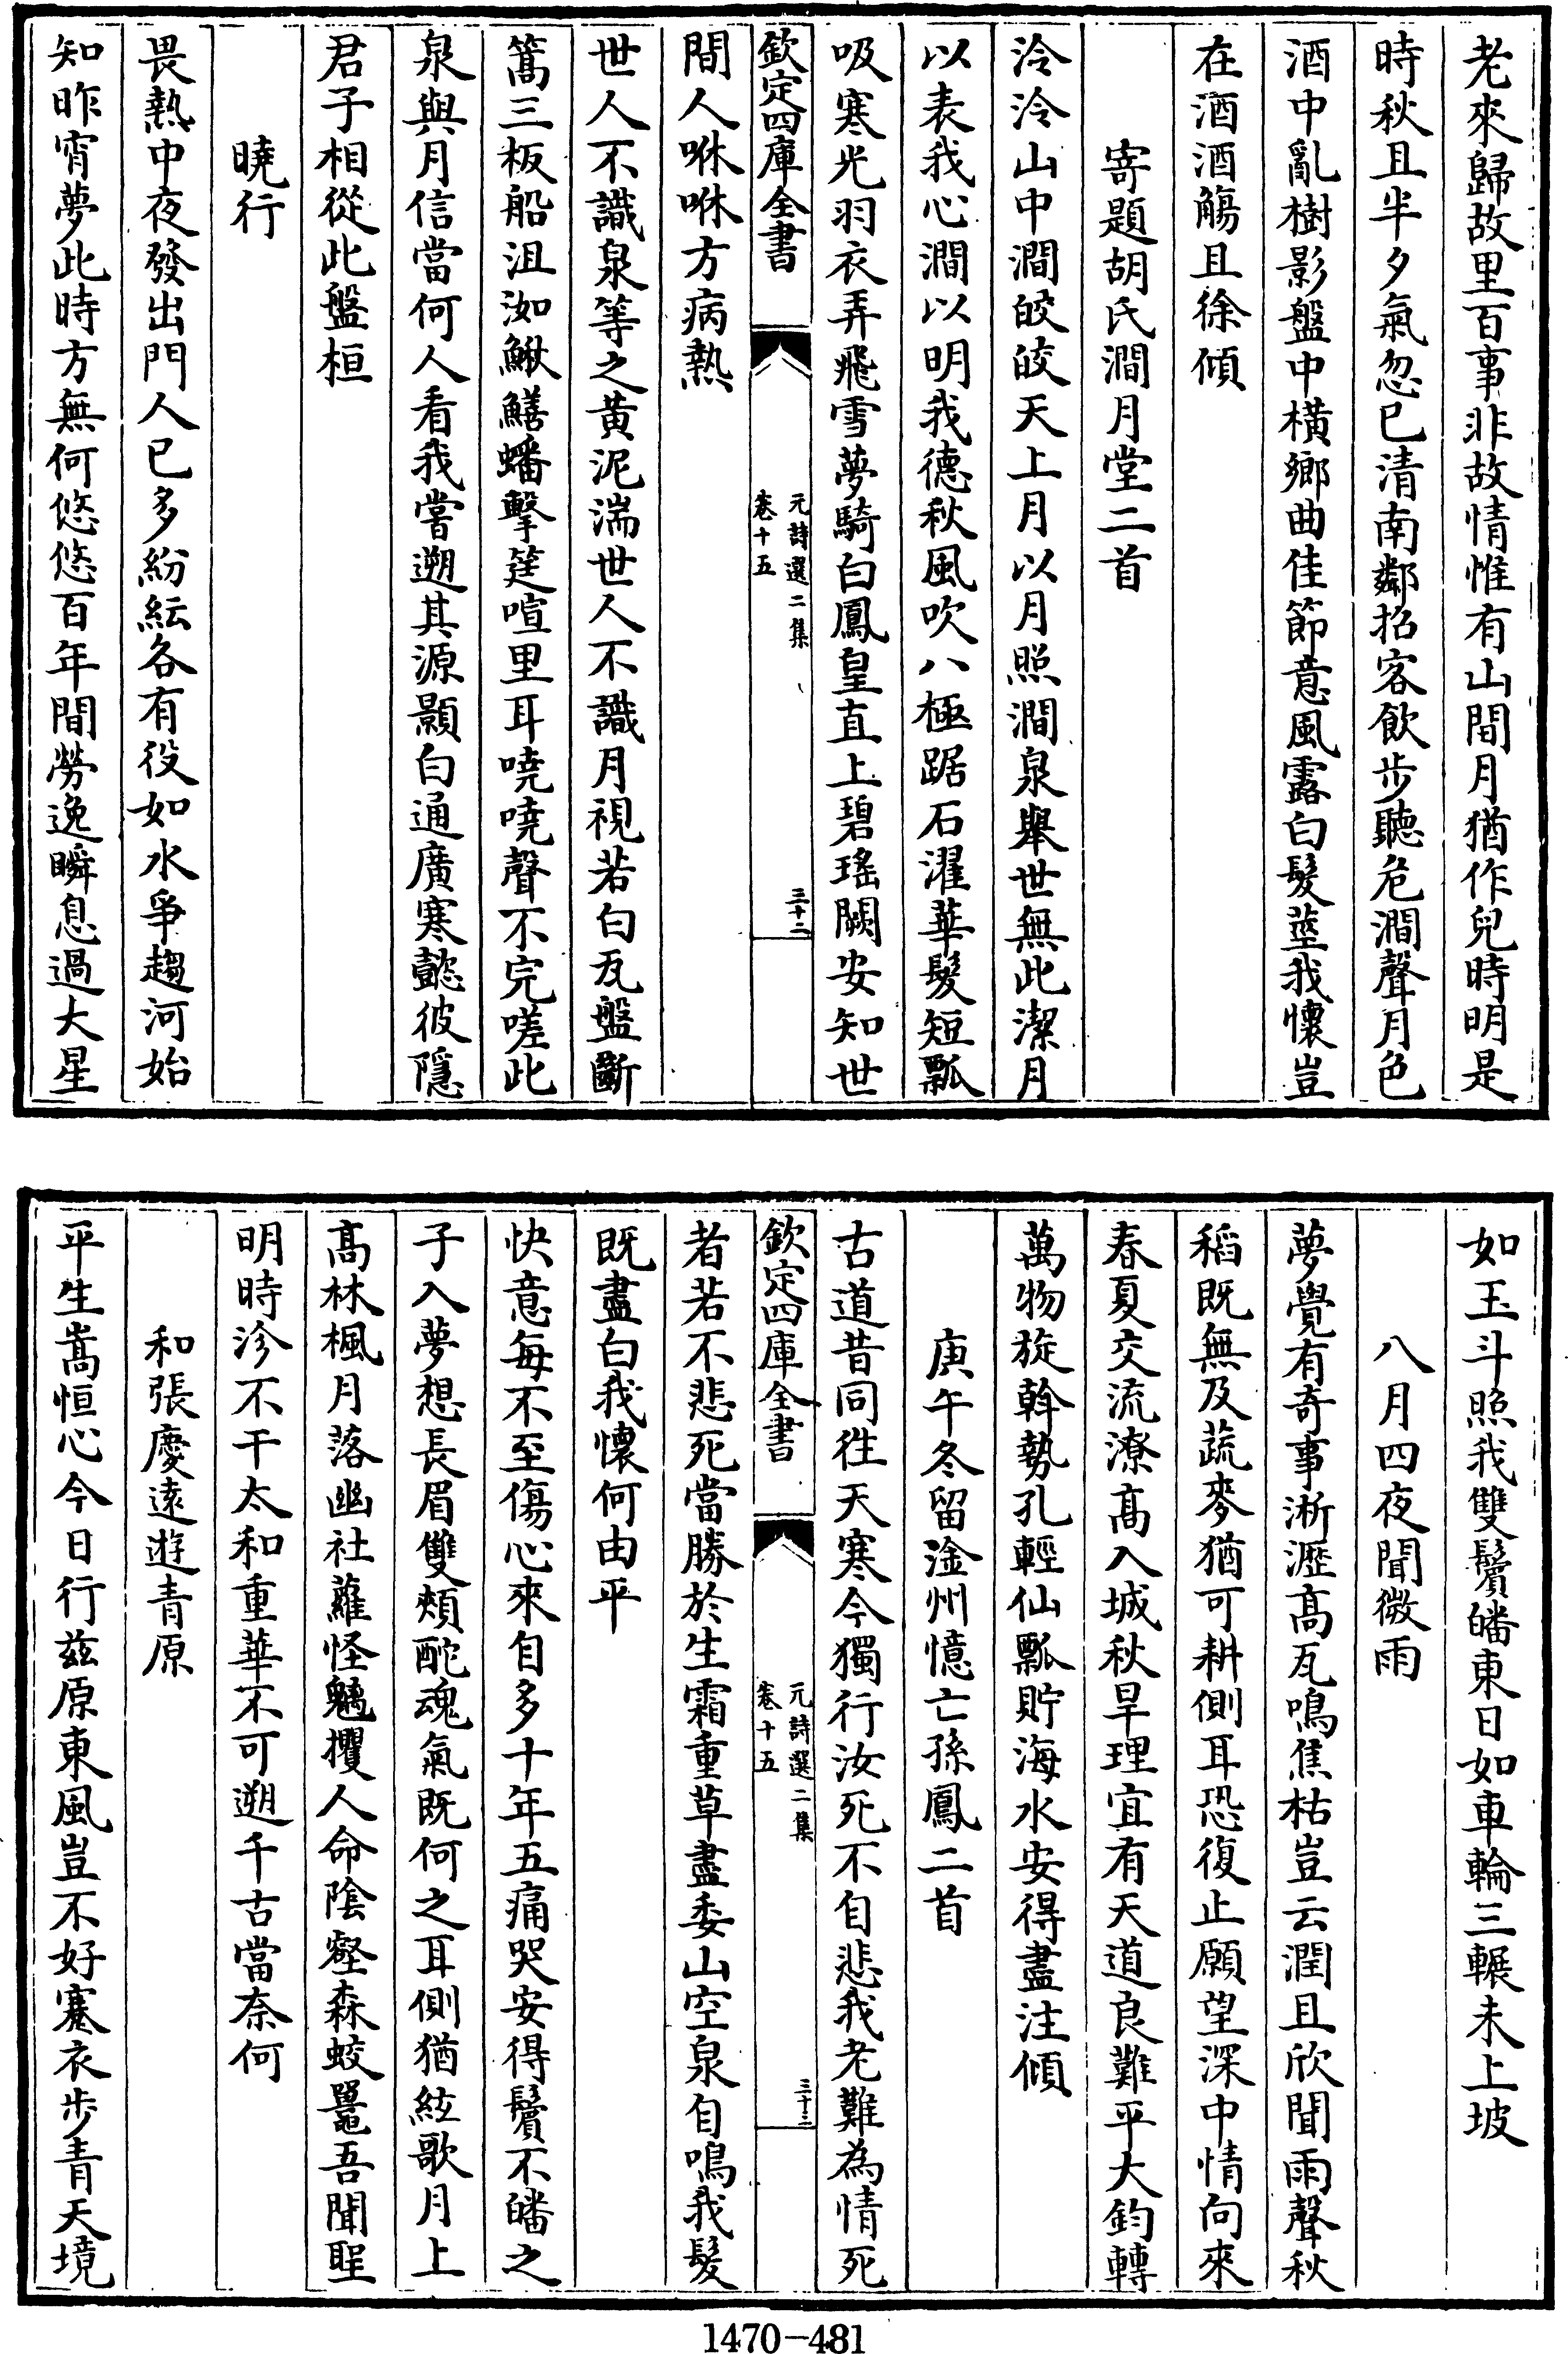 老來歸故里百事非故情惟有山間月猶作兒時明是
時秋且半夕氣忽已清南鄰招客飲步聽危澗聲月色
酒中亂樹影盤中橫鄉曲佳節意風露白髮莖我懷豈
在酒酒觴且徐傾
寄題胡氏澗月堂二首
泠泠山中澗皎皎天上月以月照澗泉舉世無此潔月
以表我心澗以明我德秋風吹八極踞石濯華髮短瓢
吸寒光羽衣弄飛雪夢騎白鳳皇直上碧瑤闕安知世
欽定四庫全書
元詩選二集
卷十五
三十二
間人咻咻方病熱
世人不識泉等之黃泥湍世人不識月視若白瓦盤斷
篙三板船沮洳鰍鱔蟠擊筳喧里耳嘵嘵聲不完嗟此
泉與月信當何人看我嘗遡其源顥白通廣寒懿彼隱
君子相從此盤桓
曉行
畏熱中夜發出門人已多紛紜各有役如水爭趨河始
知昨宵夢此時方無何悠悠百年間勞逸瞬息過大星
如玉斗照我雙鬢皤東日如車輪三輾未上坡
八月四夜聞微雨
夢覺有奇事淅瀝高瓦鳴焦枯豈云潤且欣聞雨聲秋
稻既無及蔬麥猶可耕側耳恐復止願望深中情向來
春夏交流潦高入城秋旱理宜有天道良難平大鈞轉
萬物旋斡勢孔輕仙瓢貯海水安得盡注傾
庚午冬留淦州憶亡孫鳳二首
古道昔同徃天寒今獨行汝死不自悲我老難為情死
欽定四庫全書
元詩選二集
卷十五
三十三
者若不悲死當勝於生霜重草盡委山空泉自鳴我髮
既盡白我懷何由平
快意每不至傷心來自多十年五痛哭安得鬢不皤之
子入夢想長眉雙頰酡魂氣既何之耳側猶絃歌月上
髙林楓月落幽社蘿怪魑攫人命陰壑森蛟鼉吾聞聖
明時沴不干太和重華不可遡千古當奈何
和張慶遠遊青原
平生嵩恒心今日行兹原東風豈不好蹇衣步青天境
1470-481